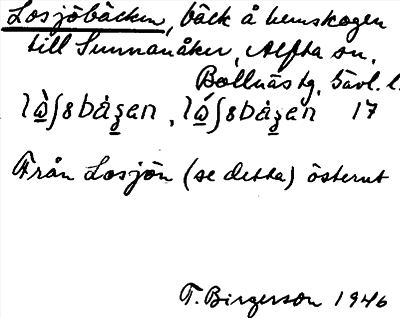 Losjöbäcken, bäck å hemskogen
till Sunnanåker, Alfta sn,
Bollnäs tg, Gävl. l.
lὼʃɞbȧʒ̱an, lώʃɞbȧʒ̱an 17
Från Losjön (se detta) österut
T. Birgerson 1946